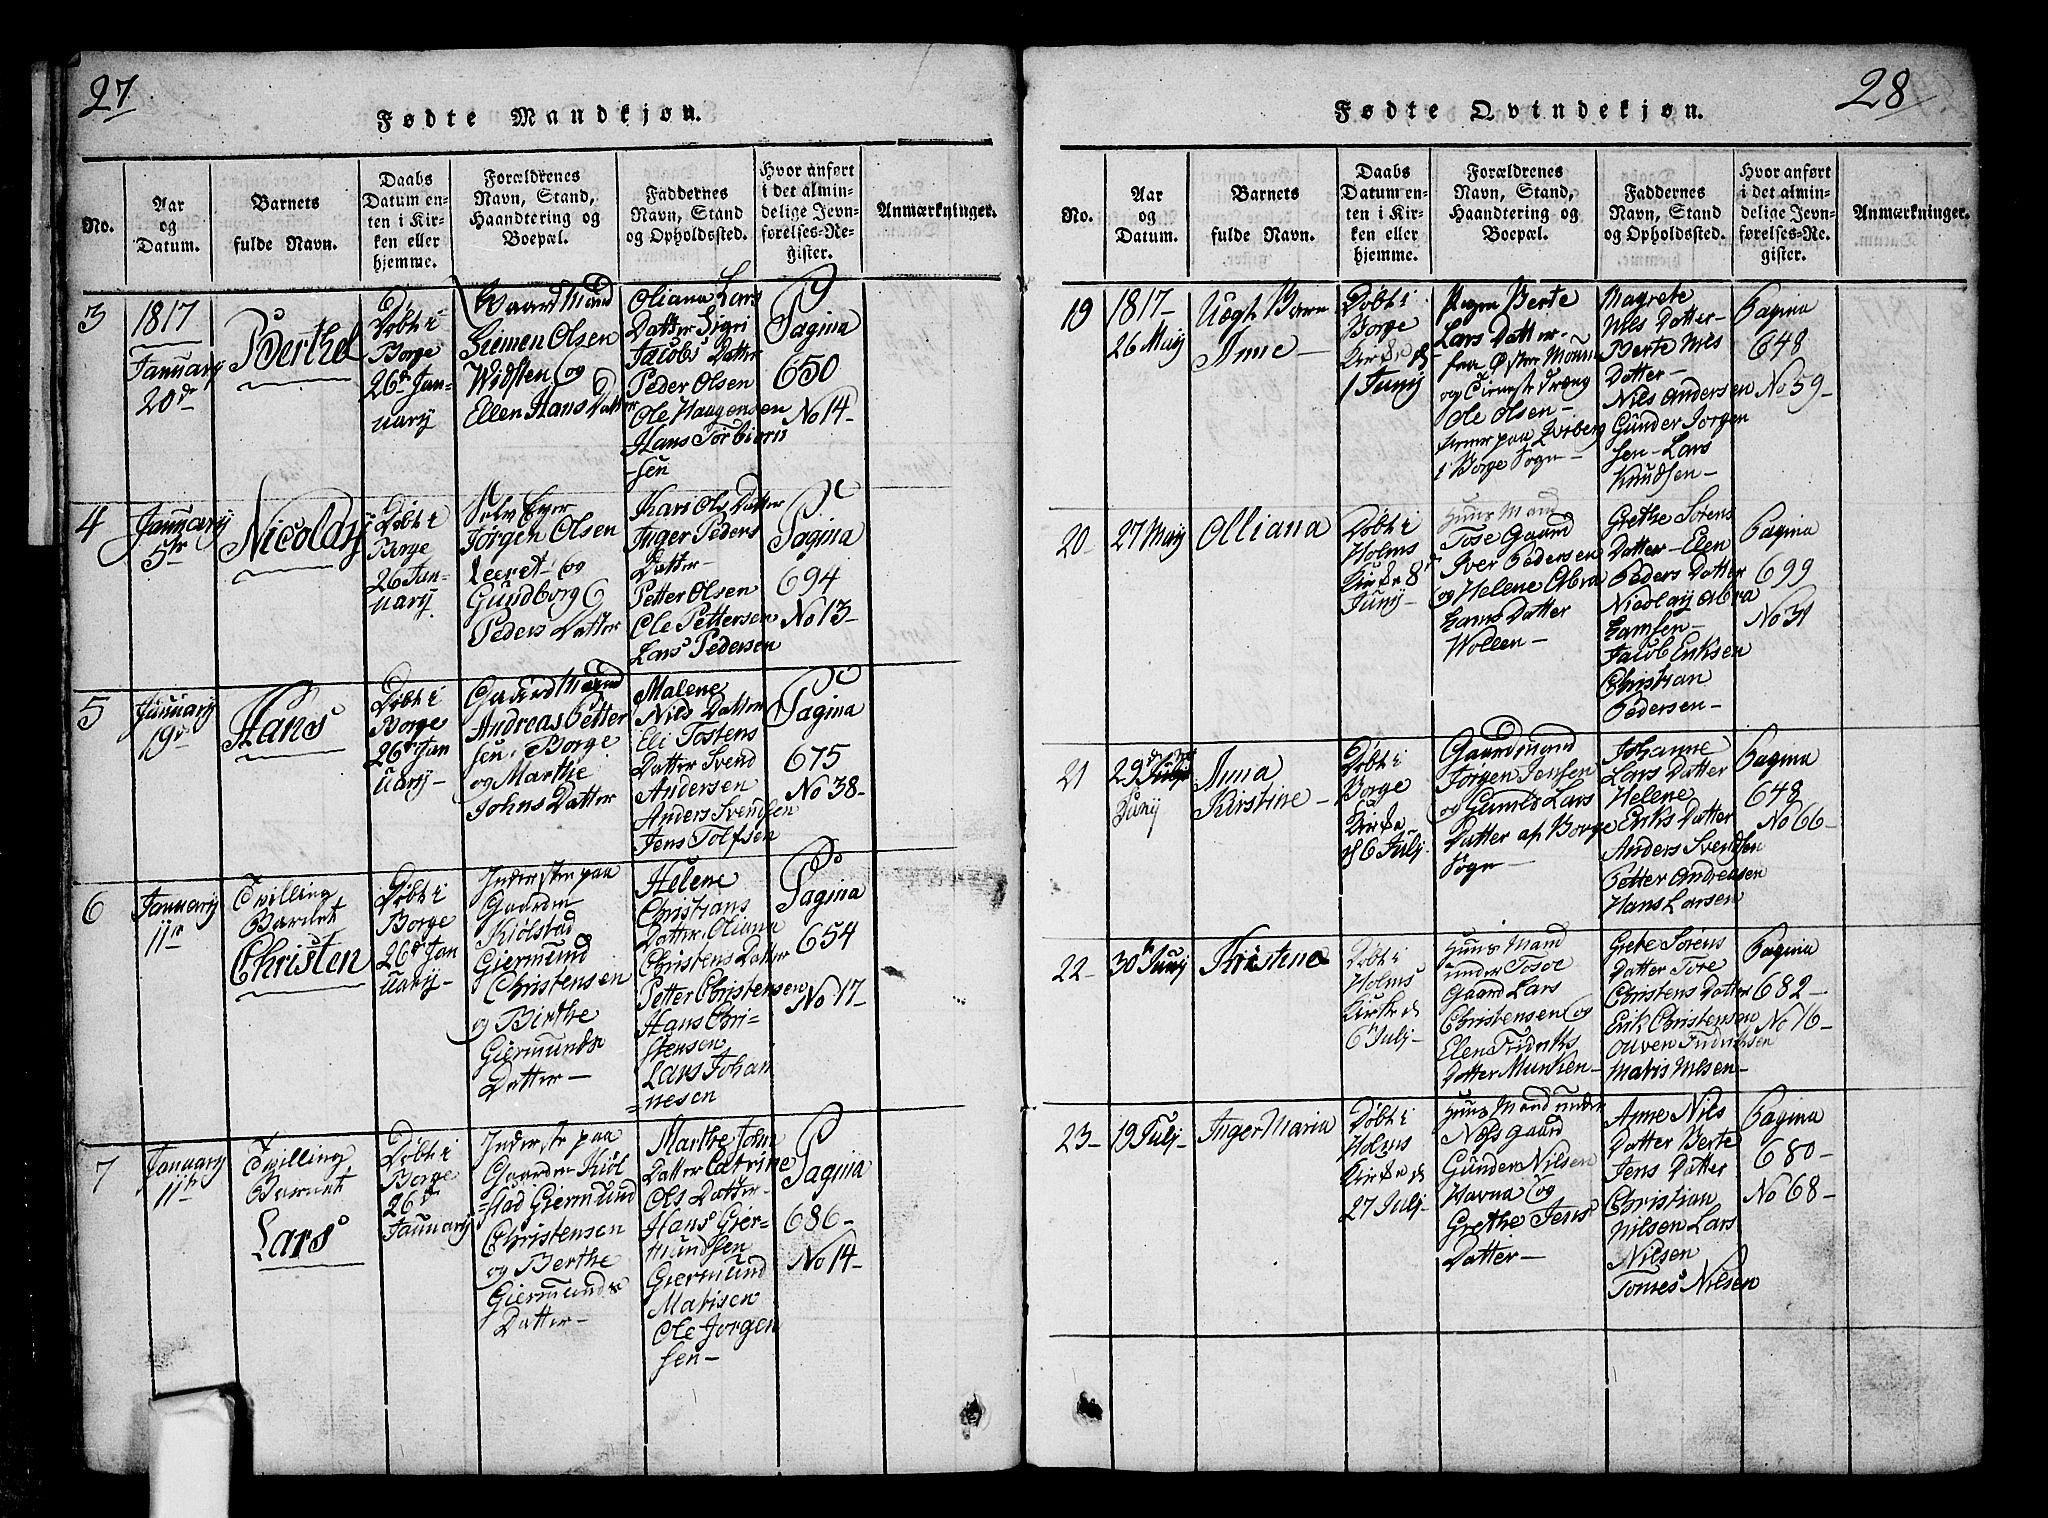 27
Fødte Mandkjøn.
No.
Aar
og
Datum.
Barnets
fulde Navn.
Daabs
Datum en-
ten i Kir-
ken eller
hjemme.
Forældrenes
Navn, Stand,
Haandtering og
Boepæl.
Faddernes
Navn, Stand
og Opholdssted.
Hvor anført
i det almin-
delige Jevn-
førelses-Re-
gister.
Anmærkninger.
3
1817
January
20de
Berthel
Døbt i
Borge
26de Jan-
uary
Gaard Mand
Siemen Olsen
Widsten og
Ellen Hans Datter
Oliana Lars
Datter Sigri
Jacobs Datter
Peder Olsen
Ole Haagensen
Hans Torbiorn
sen
Pagina
650
No 14
4
January
5te
Nicolay
Døbt i
Borge
26 Jan-
uary.
Jørgen Olsen
Leeret og
Gundborg
Peders Datter
Kars Ols Datter
Inger Peders
Datter
Petter Olsen
Ole Pettersen
Lars Pedersen
Pagina
694
No 13
5
January
19de
Hans
Døbt i
Borge
26de Jan
uary
Gaard Mand
Andreas Petter
sen. Borge
og Marthe
Johns Datter
Malene
Nils Datter
Eli Tostens
Datter Svend
Andersen
Anders Svendsen
Jens Tolfsen
Pagina
675
No 38
6
January
11te
Tvilling
Barnet
Christen
Døbt i
Borge
26de Jan
uary
Inderste paa
Gaarden
Kiølstad
Giermund
Christensen
og Birthe
Giermunds
Datter
Helene
Christians
Datter. Oliana
Christens Datter
Petter Christensen
Hans Chri-
stensen
Lars Johan
nesen
Pagina
654
No 17
7
January
11te
Tvilling
Barnet
Lars
Døbt i
Borge
26de
January
Inderste paa
Gaarden Kiøl
stad Giermund
Christensen
og Berthe
Giermunds
Datter
Marthe John
Datter Catrine
Ols Datter
Hans Gier-
mundsen
Giermund
Matisen
Ole Jorgen
sen
Pagina
686
No 14
28
Fødte Qvindekjøn.
No.
Aar
og
Datum.
Barnets
fulde Navn.
Daabs
Datum en-
ten i Kir-
ken eller
hjemme.
Forældrenes
Navn, Stand,
Haandtering og
Boepæl.
Faddernes
Navn, Stand
og Opholdssted.
Hvor anført
i det almin-
delige Jevn-
førelses-Re-
gister.
Anmærkninger.
19
1817
26 Maij
Uægt Barn
Anne
Døbt i
Borge
Kirke d
1 Junij
Pigen Berte
Lars Datter
fra Øster
og Tieneste Dræng
Ole Olsen
paa
i Borge Sogn
Magrete
Nils Datter
Berte Nils
Datter
Nils Andersen
Gunder Jorgen
sen Lars
Knudsen
Pagina
648
No 59
20
27 Maij
Olliana
Døbt i
Holms
Kirke 8de
Junij
Huus Mand
Tose Gaard
Iver Pedersen
og Helene Abra
hams Datter
Wollen
Grethe Sorens
Datter Elen
Peders Datter
Nicolaij Abra
hamsen
Jacob Eriksen
Christian
Pedersen
Pagina
699
No 31
21
29de
Junij
Anna
Kirstine
Døbt i
Borge
Kirke
d 6 Julj
Gaardmand
Jørgen Jensen
og Gunild Lars
Datter af Borge
Sogn
Johanne
Lars Datter
Helene
Eriks Datter
Anders Svendsen
Petter Andreasen
Hans Larsen
Pagina
648
No 66
22
30te Junij
Kristine
Døbt i
Holms
Kirke d
6te Julj
Huus Mand
under Tosoe
Gaard Lars
Christensen og
Elen Fridriks
Datter Munken
Grete Sørens
Datter Tore
Christens Datter
Erik Christensen
Fridriksen
Matis Nilsen
Pagina
682
No 16
23
19 Julj
Inger Maria
Døbt i
Holms
Kirke d
27 Julj
Huus Mand under
Næss gaard
Gunder Nilsen
Havna og
Grethe Jens
Datter
Anne Nils
Datter Berte
Jens Datter
Christian
Nilsen Lars
Nilsen
Tomes Nilsen
Pagina
680
No 68